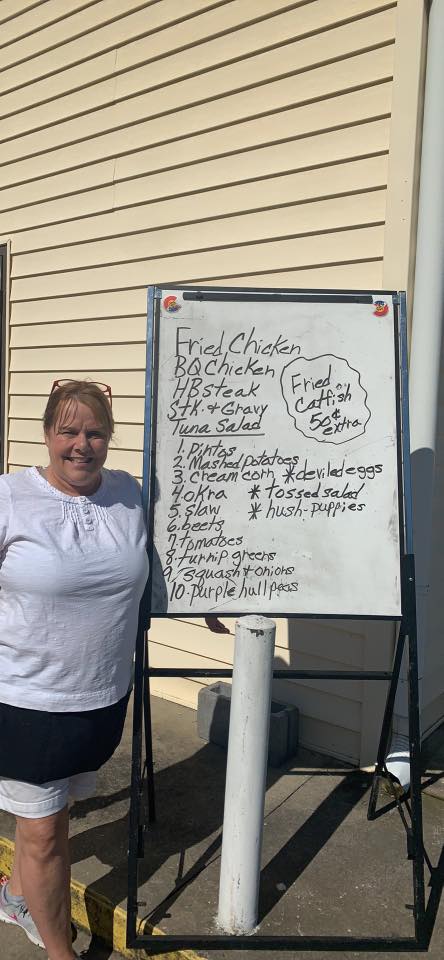 Fried Chicken
BQ Chicken
HB steak
Stk. & Gravy
Tuna Salad
Fried
Catfish
50¢
extra
1. Pintos
2. Mashed potatoes
3. cream corn *deviled eggs
4. okra *tossed salad
5. slaw *hush-puppies
6. beets
7. tomatoes
8. turnip greens
9. squash & onions
10. purple hull peas